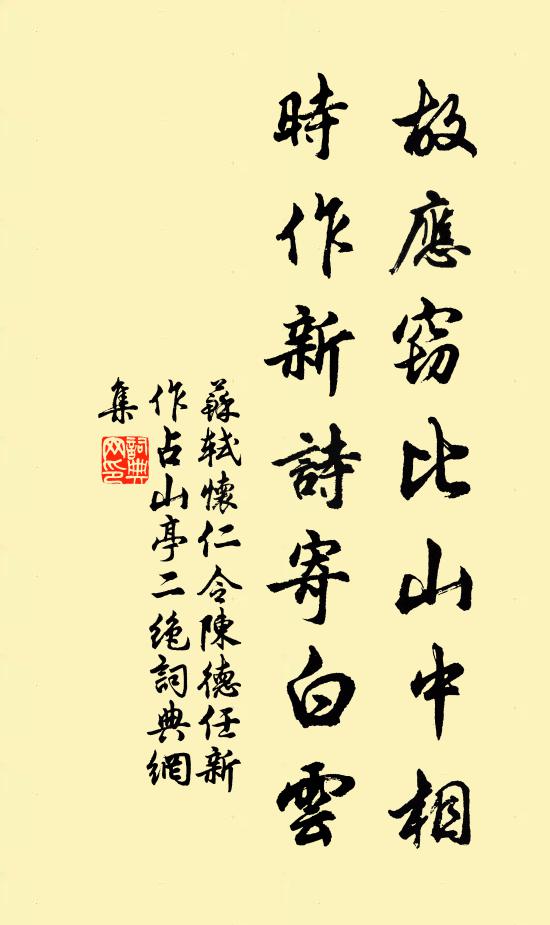 故應窈比山中相
時作新詩寄白雲
蘇軾懷仁令陳德任新
作占山亭二絶詞典網
集
詞典
网印